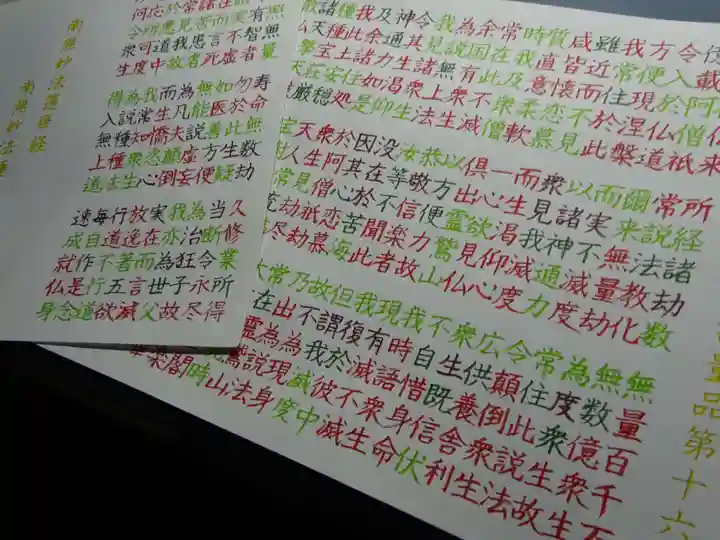 量品第十六
仏来 所経諸劫数 無量百千万
載阿僧祇 常説法教化 無数億衆生
令入於仏道 爾来無量劫 為度衆生故
方便現涅槃 而実不滅度 常住此説法
我常住於此 以諸神通力 令顛倒衆生
雖近而不見 衆見我滅度 広供養舎利
咸皆懐恋慕 而生渇仰心 衆生既信伏
質直意柔軟 一心欲見仏 不自惜身命
時我及衆僧 倶出霊鷲山 我時語衆生
常在此不滅 以方便力故 現有滅不滅
余国有衆生 恭敬信楽者 我復於彼中
為説無上法 汝等不聞此 但謂我滅度
我見諸衆生 没在於苦海 故不為現身
令其生渇仰 因其心恋慕 乃出為説法
神通力如是 於阿僧祇劫 常在 山
及余諸住処 衆生見劫尽 時
我此土安穏 天人常
種 宝荘厳
無量 寿命無数劫 久修業所得
有智者 勿於此生疑 当断令永尽
語実不虚 如医善方便 為治狂子故
実在而言死 無能説虚妄 我亦為世父
諸苦患者 為凡夫顛倒 実在而言滅
常見我故 而生憍恣心 放逸著五欲
於悪道中 我常知衆生 行道不行道
応所可度 為説種種法 毎自作是念
何令衆生 得入無上道 速成就仏身
南無妙法蓮華経
南無妙法蓮